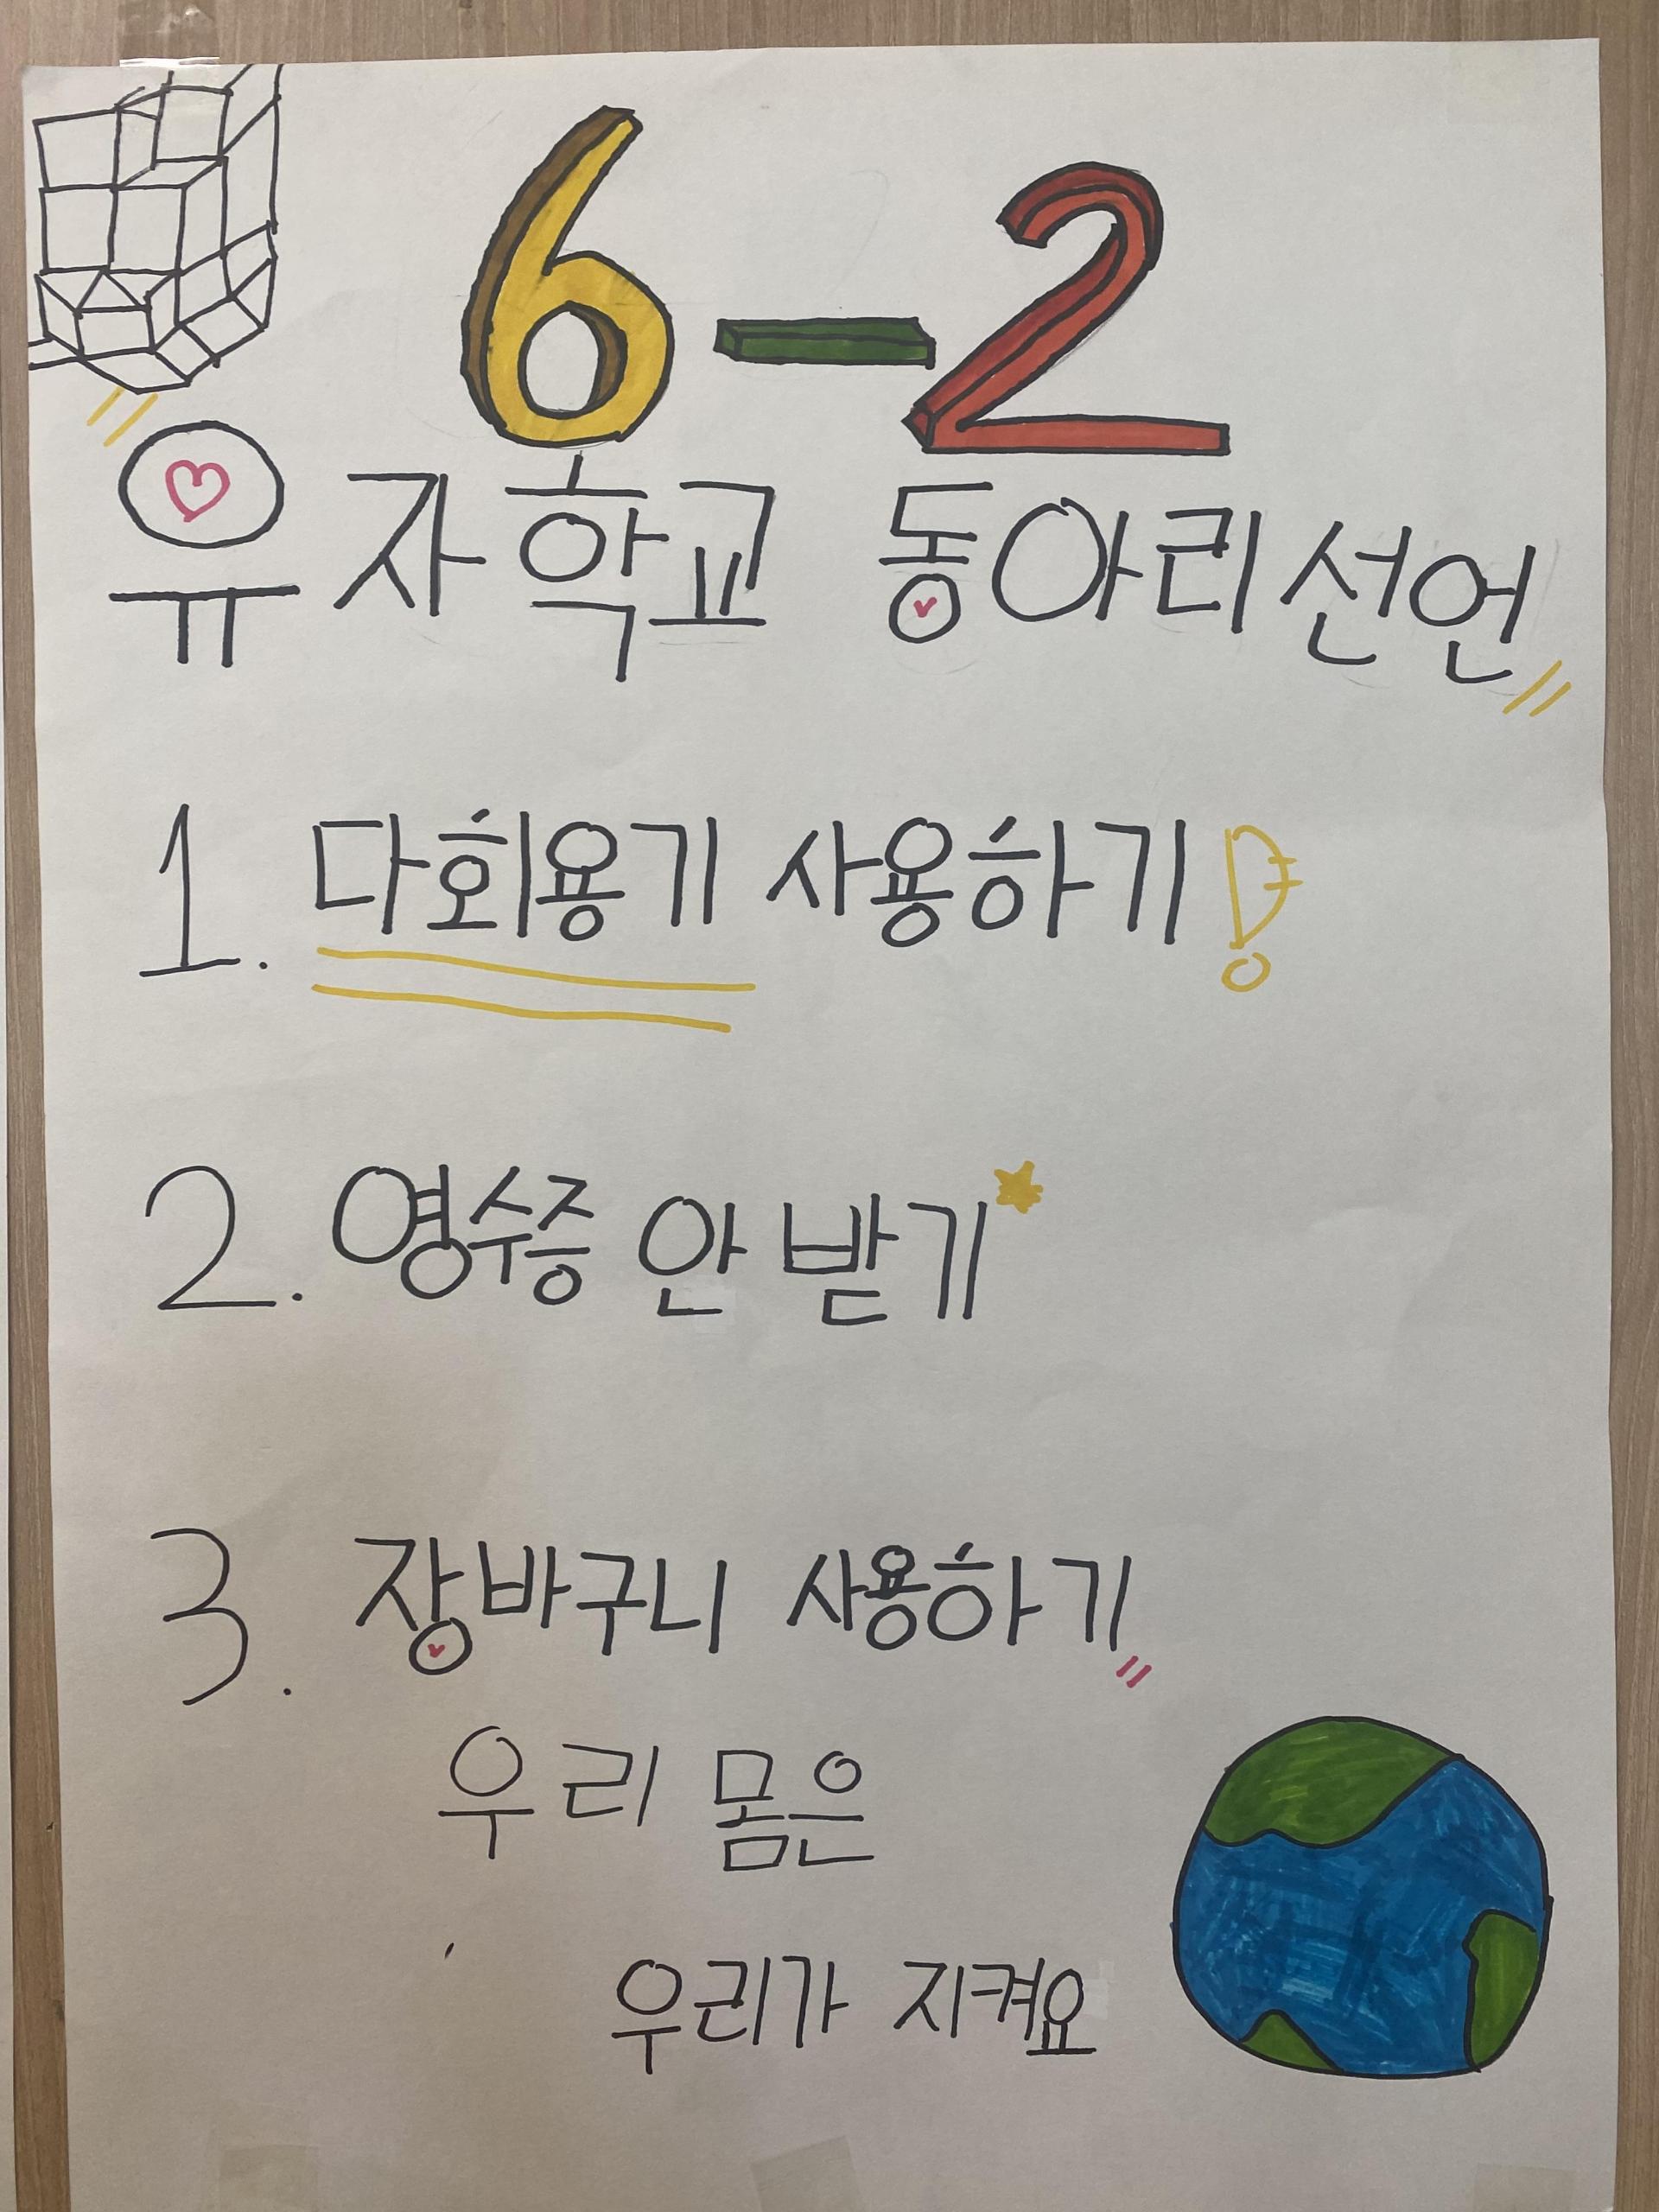 6-2
유자학교 동아리선언
1. 다회용기 사용하기!
2. 영수증 안 받기
3. 장바구니 사용하기
우리 몸은
우리가 지켜요